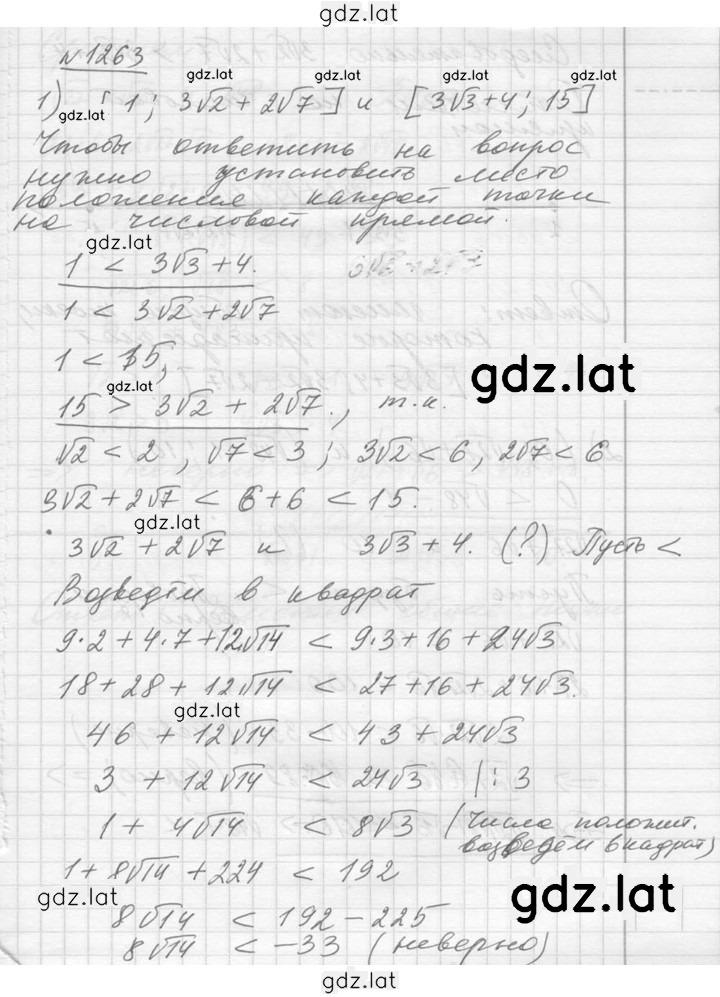 gdz.lat
№1263
gdz.lat gdz.lat gdz.lat
1) [1; 3√2 + 2√7] и [3√3+4; 15]
gdz.lat
Чтобы ответить на вопрос
нужно установить место
положение каждой точки
на числовой прямой.
gdz.lat
1 < 3√3+4.
1 < 3√2+2√7
1 < 15,
gdz.lat
15 > 3√2 + 2√7., т.к.
√2 < 2, √7 < 3; 3√2 < 6, 2√7 < 6
3√2+2√7 < 6+6 < 15.
gdz.lat
3√2 + 2√7 и 3√3+4. (?) Пусть <
Возведём в квадрат
9·2+4·7+12√14 < 9·3+16+24√3
18+28+12√14 < 27+16+24√3.
gdz.lat
46 + 12√14 < 43+24√3
3 + 12√14 < 24√3 |: 3
1+ 4√14 < 8√3 (Числа положит.
возведём в квадрат)
1+8√14+224 < 192
gdz.lat gdz.lat
8√14 < 192-225
8√14 < -33 (неверно)
gdz.lat